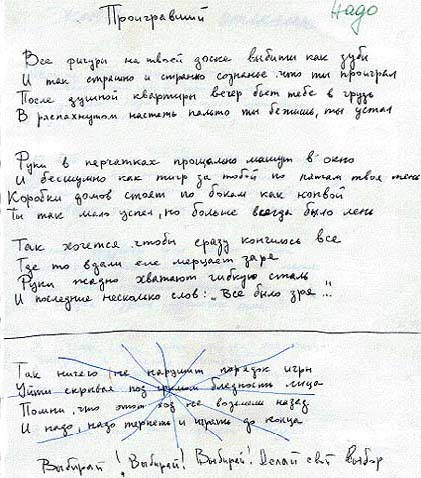 Проигравший
Надо
Все фигуры на твоей доске выбиты как зубы
И так страшно и странно сознанье что ты проиграл
После душной квартиры вечер бьет тебе в грудь
В распахнутом настежь пальто ты бежишь, ты устал
Руки в перчатках прощально машут в окно
И бесшумно как тигр за тобой по пятам твоя тень
Коробки домов стоят по бокам как конвой
Ты так мало успел, но больше всегда было лень
Так хочется чтобы сразу кончилось все
Где то вдали еле мерцает заря
Руки жадно хватают гибкую сталь
И последние несколько слов: "Все было зря..."
Так ничего не нарушит порядок игры
Уйти скрывая под гримом бледность лица
Помни, что этот ход не возьмешь назад
И надо, надо терпеть и играть до конца
Выбирай! Выбирай! Выбирай! Делай свой выбор